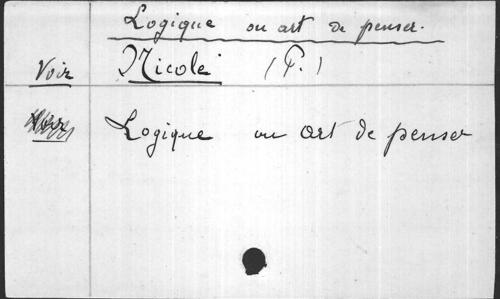 Logique ou art de penser.
Voir Nicole (P.)
Logique ou art de penser